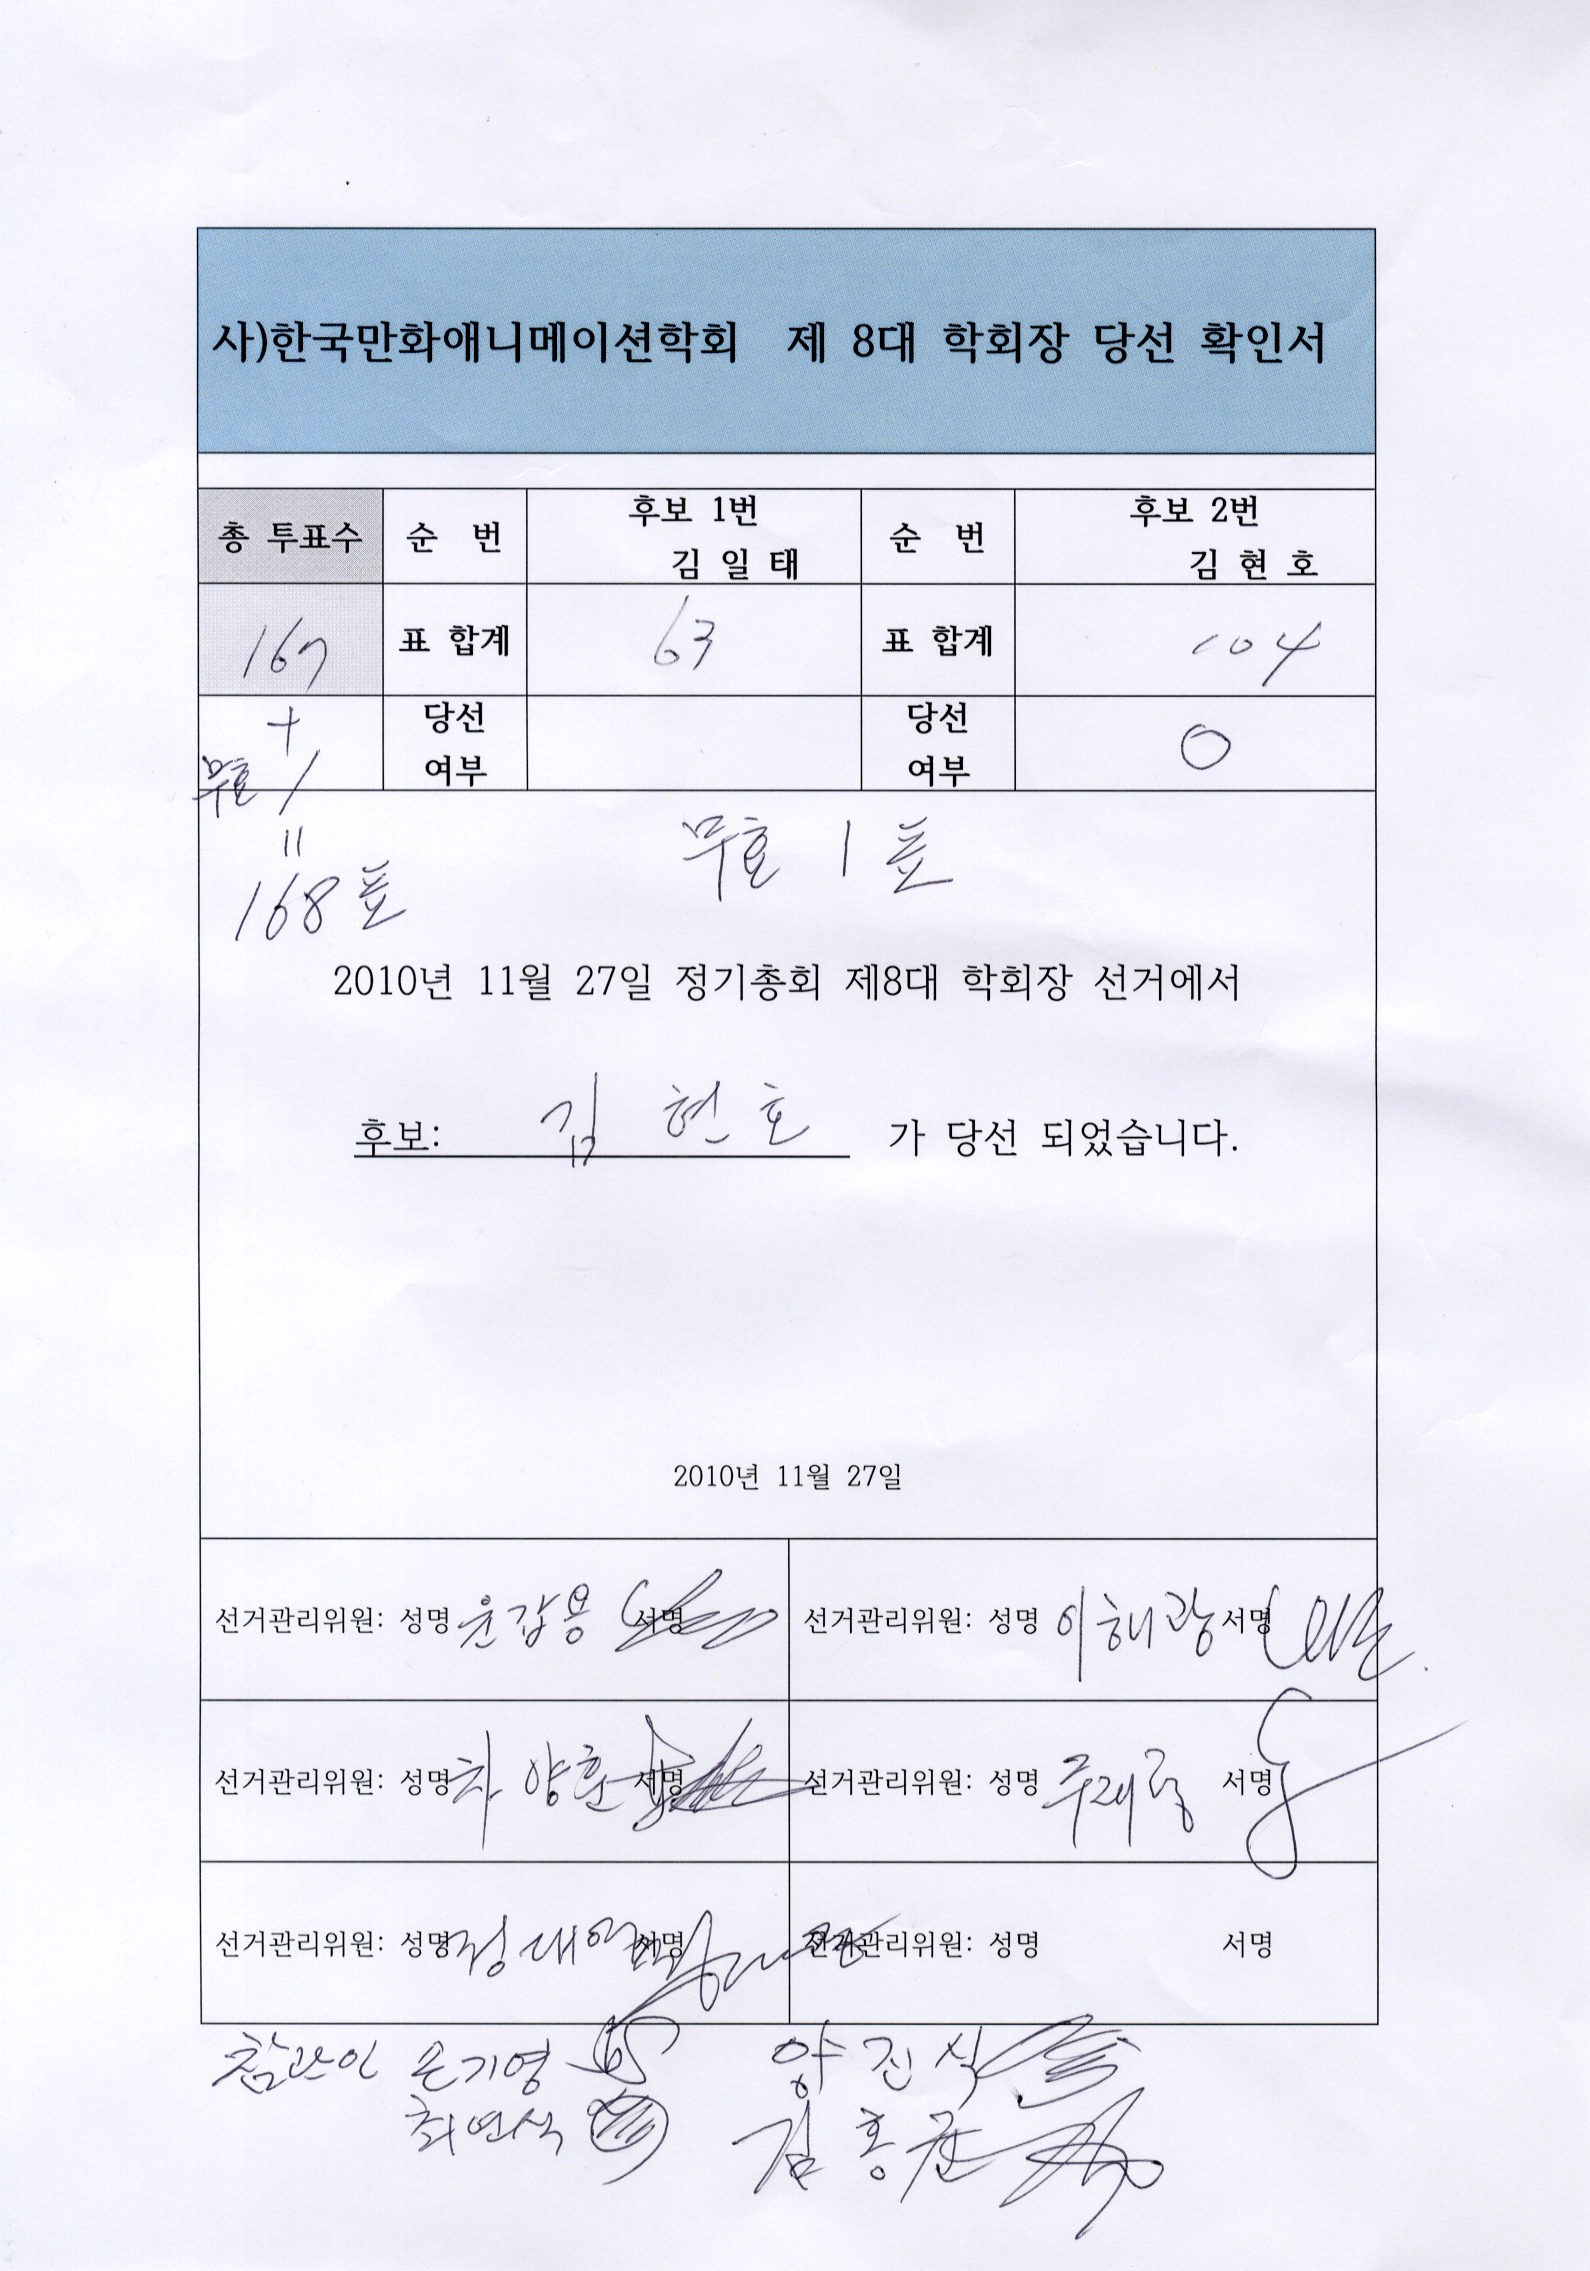 사)한국만화애니메이션학회 제 8대 학회장 당선 확인서
총 투표수 순 번 후보 1번 김 일 태 순 번 후보 2번 김 현 호
167 표 합계 63 표 합계 104
+ 당선 여부 당선 여부 ○
무효 1
=
168표
무효 1 표
2010년 11월 27일 정기총회 제8대 학회장 선거에서
후보: 김 현 호 가 당선 되었습니다.
2010년 11월 27일
선거관리위원: 성명 윤갑용 서명 선거관리위원: 성명 이해광 서명
선거관리위원: 성명 차양훈 서명 선거관리위원: 성명 주재령 서명
선거관리위원: 성명 서명 선거관리위원: 성명 서명
참관인 손기영 양진석
최연석 김홍균